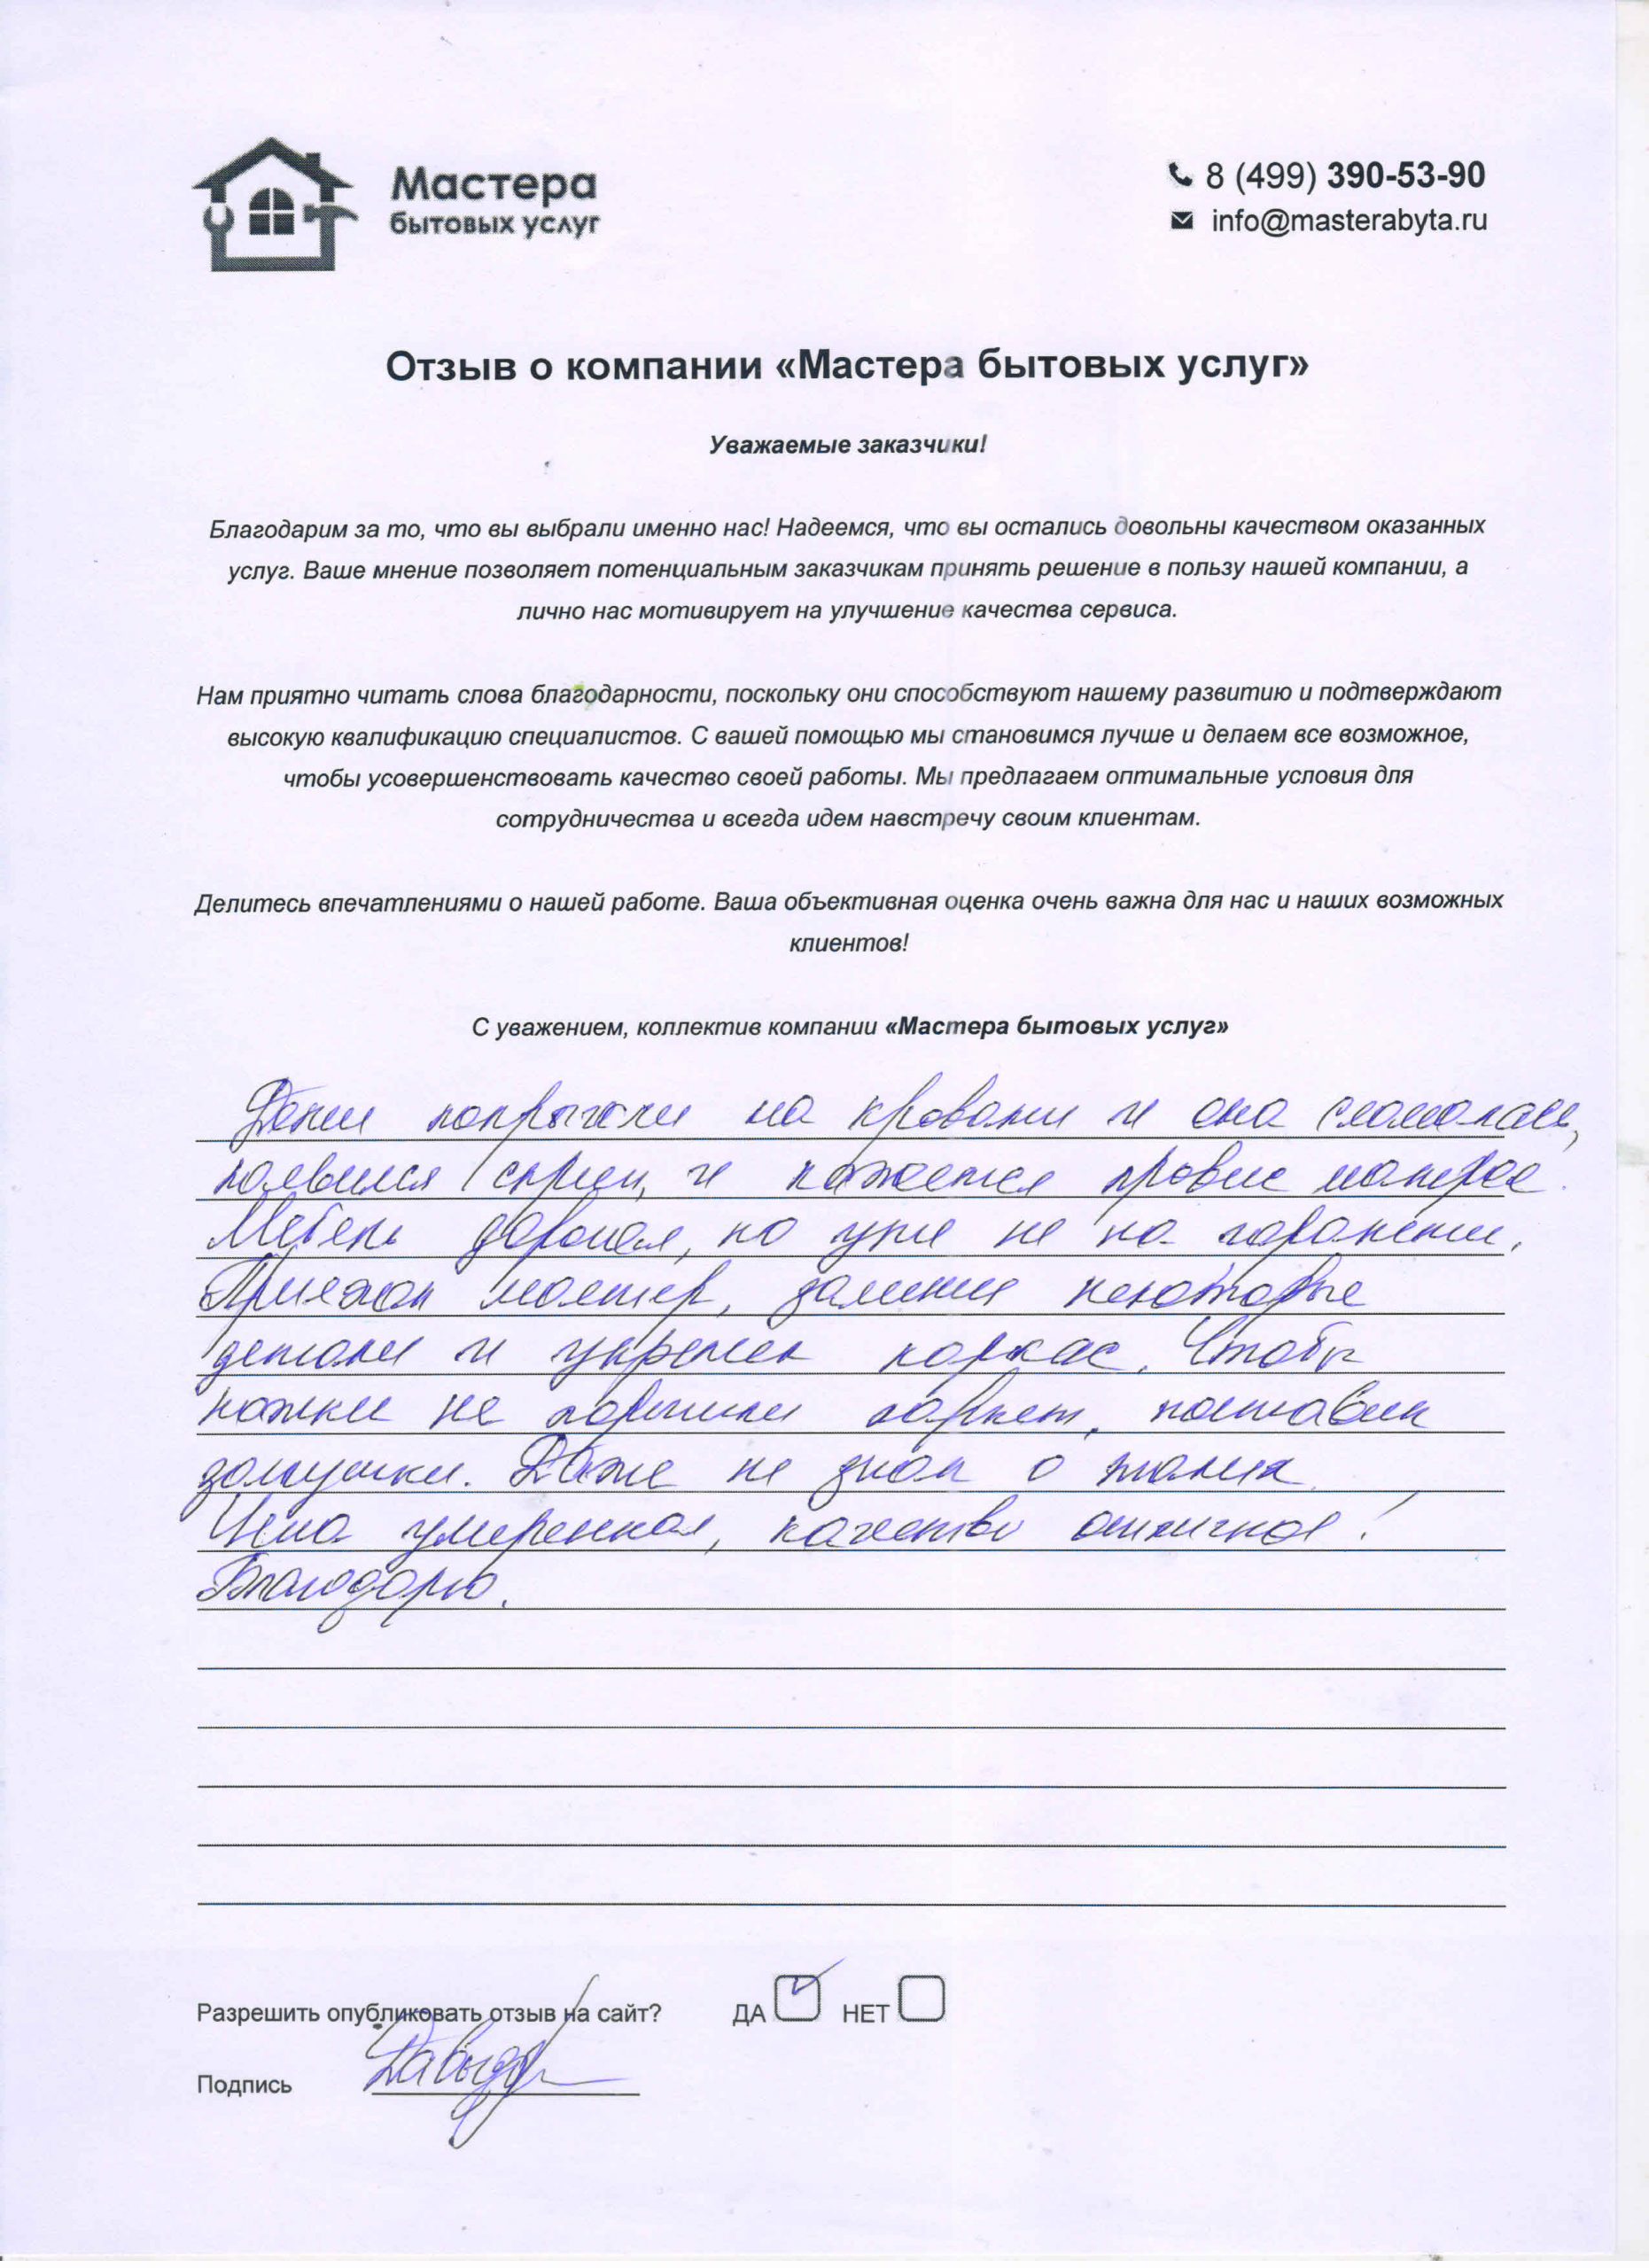 Мастера
бытовых услуг
8 (499) 390-53-90
info@masterabyta.ru
Отзыв о компании «Мастера бытовых услуг»
Уважаемые заказчики!
Благодарим за то, что вы выбрали именно нас! Надеемся, что вы остались довольны качеством оказанных
услуг. Ваше мнение позволяет потенциальным заказчикам принять решение в пользу нашей компании, а
лично нас мотивирует на улучшение качества сервиса.
Нам приятно читать слова благодарности, поскольку они способствуют нашему развитию и подтверждают
высокую квалификацию специалистов. С вашей помощью мы становимся лучше и делаем все возможное,
чтобы усовершенствовать качество своей работы. Мы предлагаем оптимальные условия для
сотрудничества и всегда идем навстречу своим клиентам.
Делитесь впечатлениями о нашей работе. Ваша объективная оценка очень важна для нас и наших возможных
клиентов!
С уважением, коллектив компании «Мастера бытовых услуг»
Дети попрыгали на кровати и она сломалась,
появился скрип, и кажется провис матрас.
Мебель дорогая, но уже не на гарантии.
Приехал мастер, заменил некоторые
детали и укрепил каркас. Чтобы
ножки не портили паркет, поставил
заглушки. Даже не знал о таких.
Цена умеренная, качество отличное!
Благодарю.
Разрешить опубликовать отзыв на сайт? ДА НЕТ
Подпись